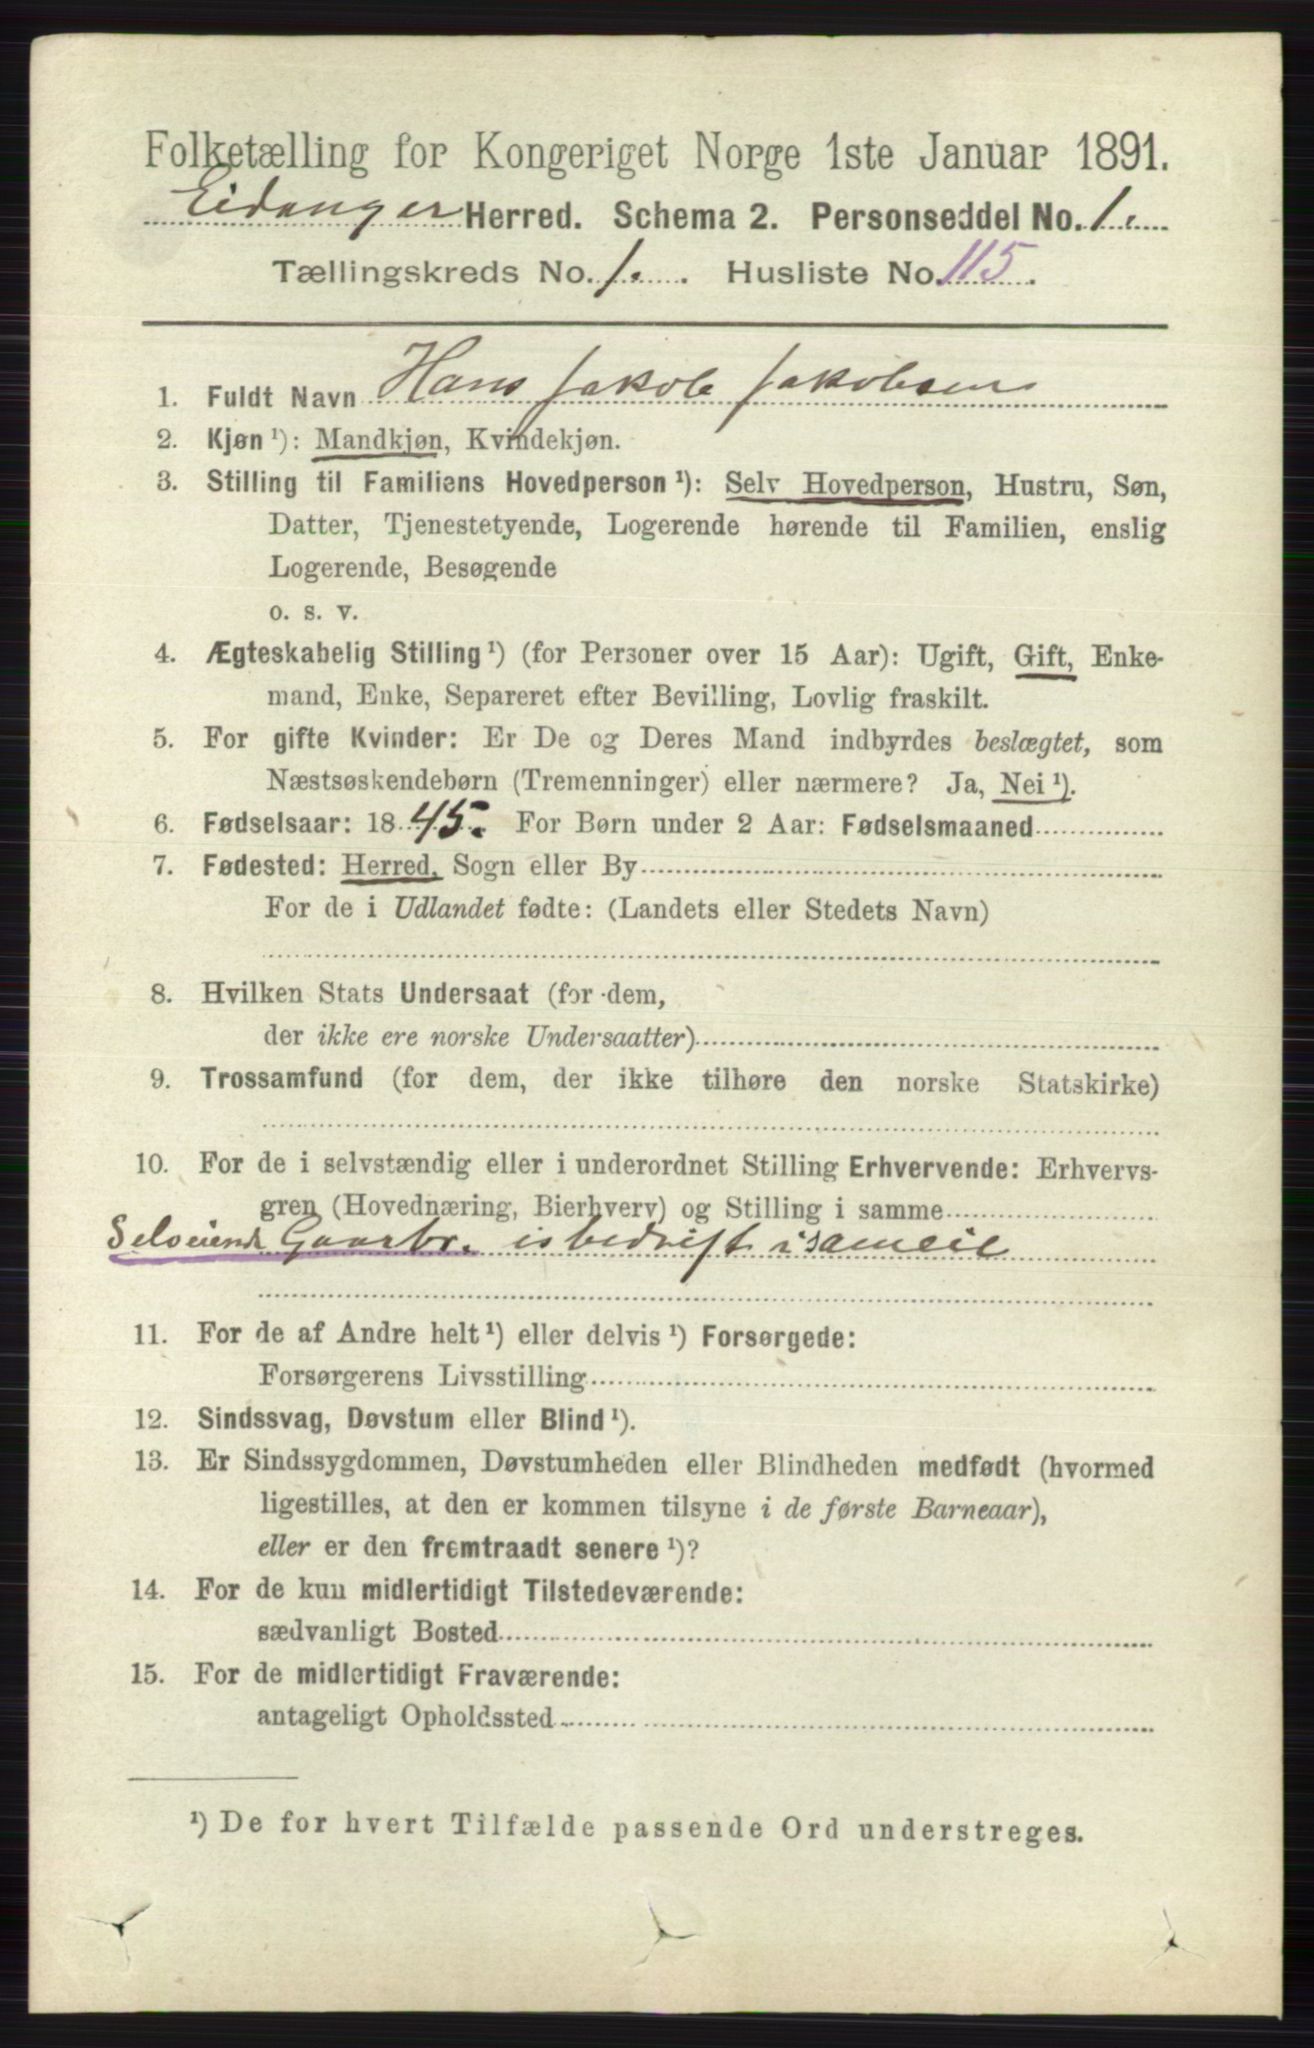 Folketælling for Kongeriget Norge 1ste Januar 1891.
Eidanger Herred. Schema 2. Personseddel No. 1.
Tællingskreds No. 1. Husliste No. 115.
1. Fuldt Navn Hans Jakob Jakobsen
2. Kjøn ¹): Mandkjøn, Kvindekjøn.
3. Stilling til Familiens Hovedperson ¹): Selv Hovedperson, Hustru, Søn,
Datter, Tjenestetyende, Logerende hørende til Familien, enslig
Logerende, Besøgende
o. s. v.
4. Ægteskabelig Stilling ¹) (for Personer over 15 Aar): Ugift, Gift, Enke-
mand, Enke, Separeret efter Bevilling, Lovlig fraskilt.
5. For gifte Kvinder: Er De og Deres Mand indbyrdes beslægtet, som
Næstsøskendebørn (Tremenninger) eller nærmere? Ja, Nei ¹).
6. Fødselsaar: 1845. For Børn under 2 Aar: Fødselsmaaned
7. Fødested: Herred, Sogn eller By
For de i Udlandet fødte: (Landets eller Stedets Navn)
8. Hvilken Stats Undersaat (for dem,
der ikke ere norske Undersaatter)
9. Trossamfund (for dem, der ikke tilhøre den norske Statskirke)
10. For de i selvstændig eller i underordnet Stilling Erhvervende: Erhvervs-
gren (Hovednæring, Bierhverv) og Stilling i samme
Selveiende Gaarbr. isbedrift i sameie
11. For de af Andre helt ¹) eller delvis ¹) Forsørgede:
Forsørgerens Livsstilling
12. Sindssvag, Døvstum eller Blind ¹).
13. Er Sindssygdommen, Døvstumheden eller Blindheden medfødt (hvormed
ligestilles, at den er kommen tilsyne i de første Barneaar),
eller er den fremtraadt senere ¹)?
14. For de kun midlertidigt Tilstedeværende:
sædvanligt Bosted
15. For de midlertidigt Fraværende:
antageligt Opholdssted
¹) De for hvert Tilfælde passende Ord understreges.